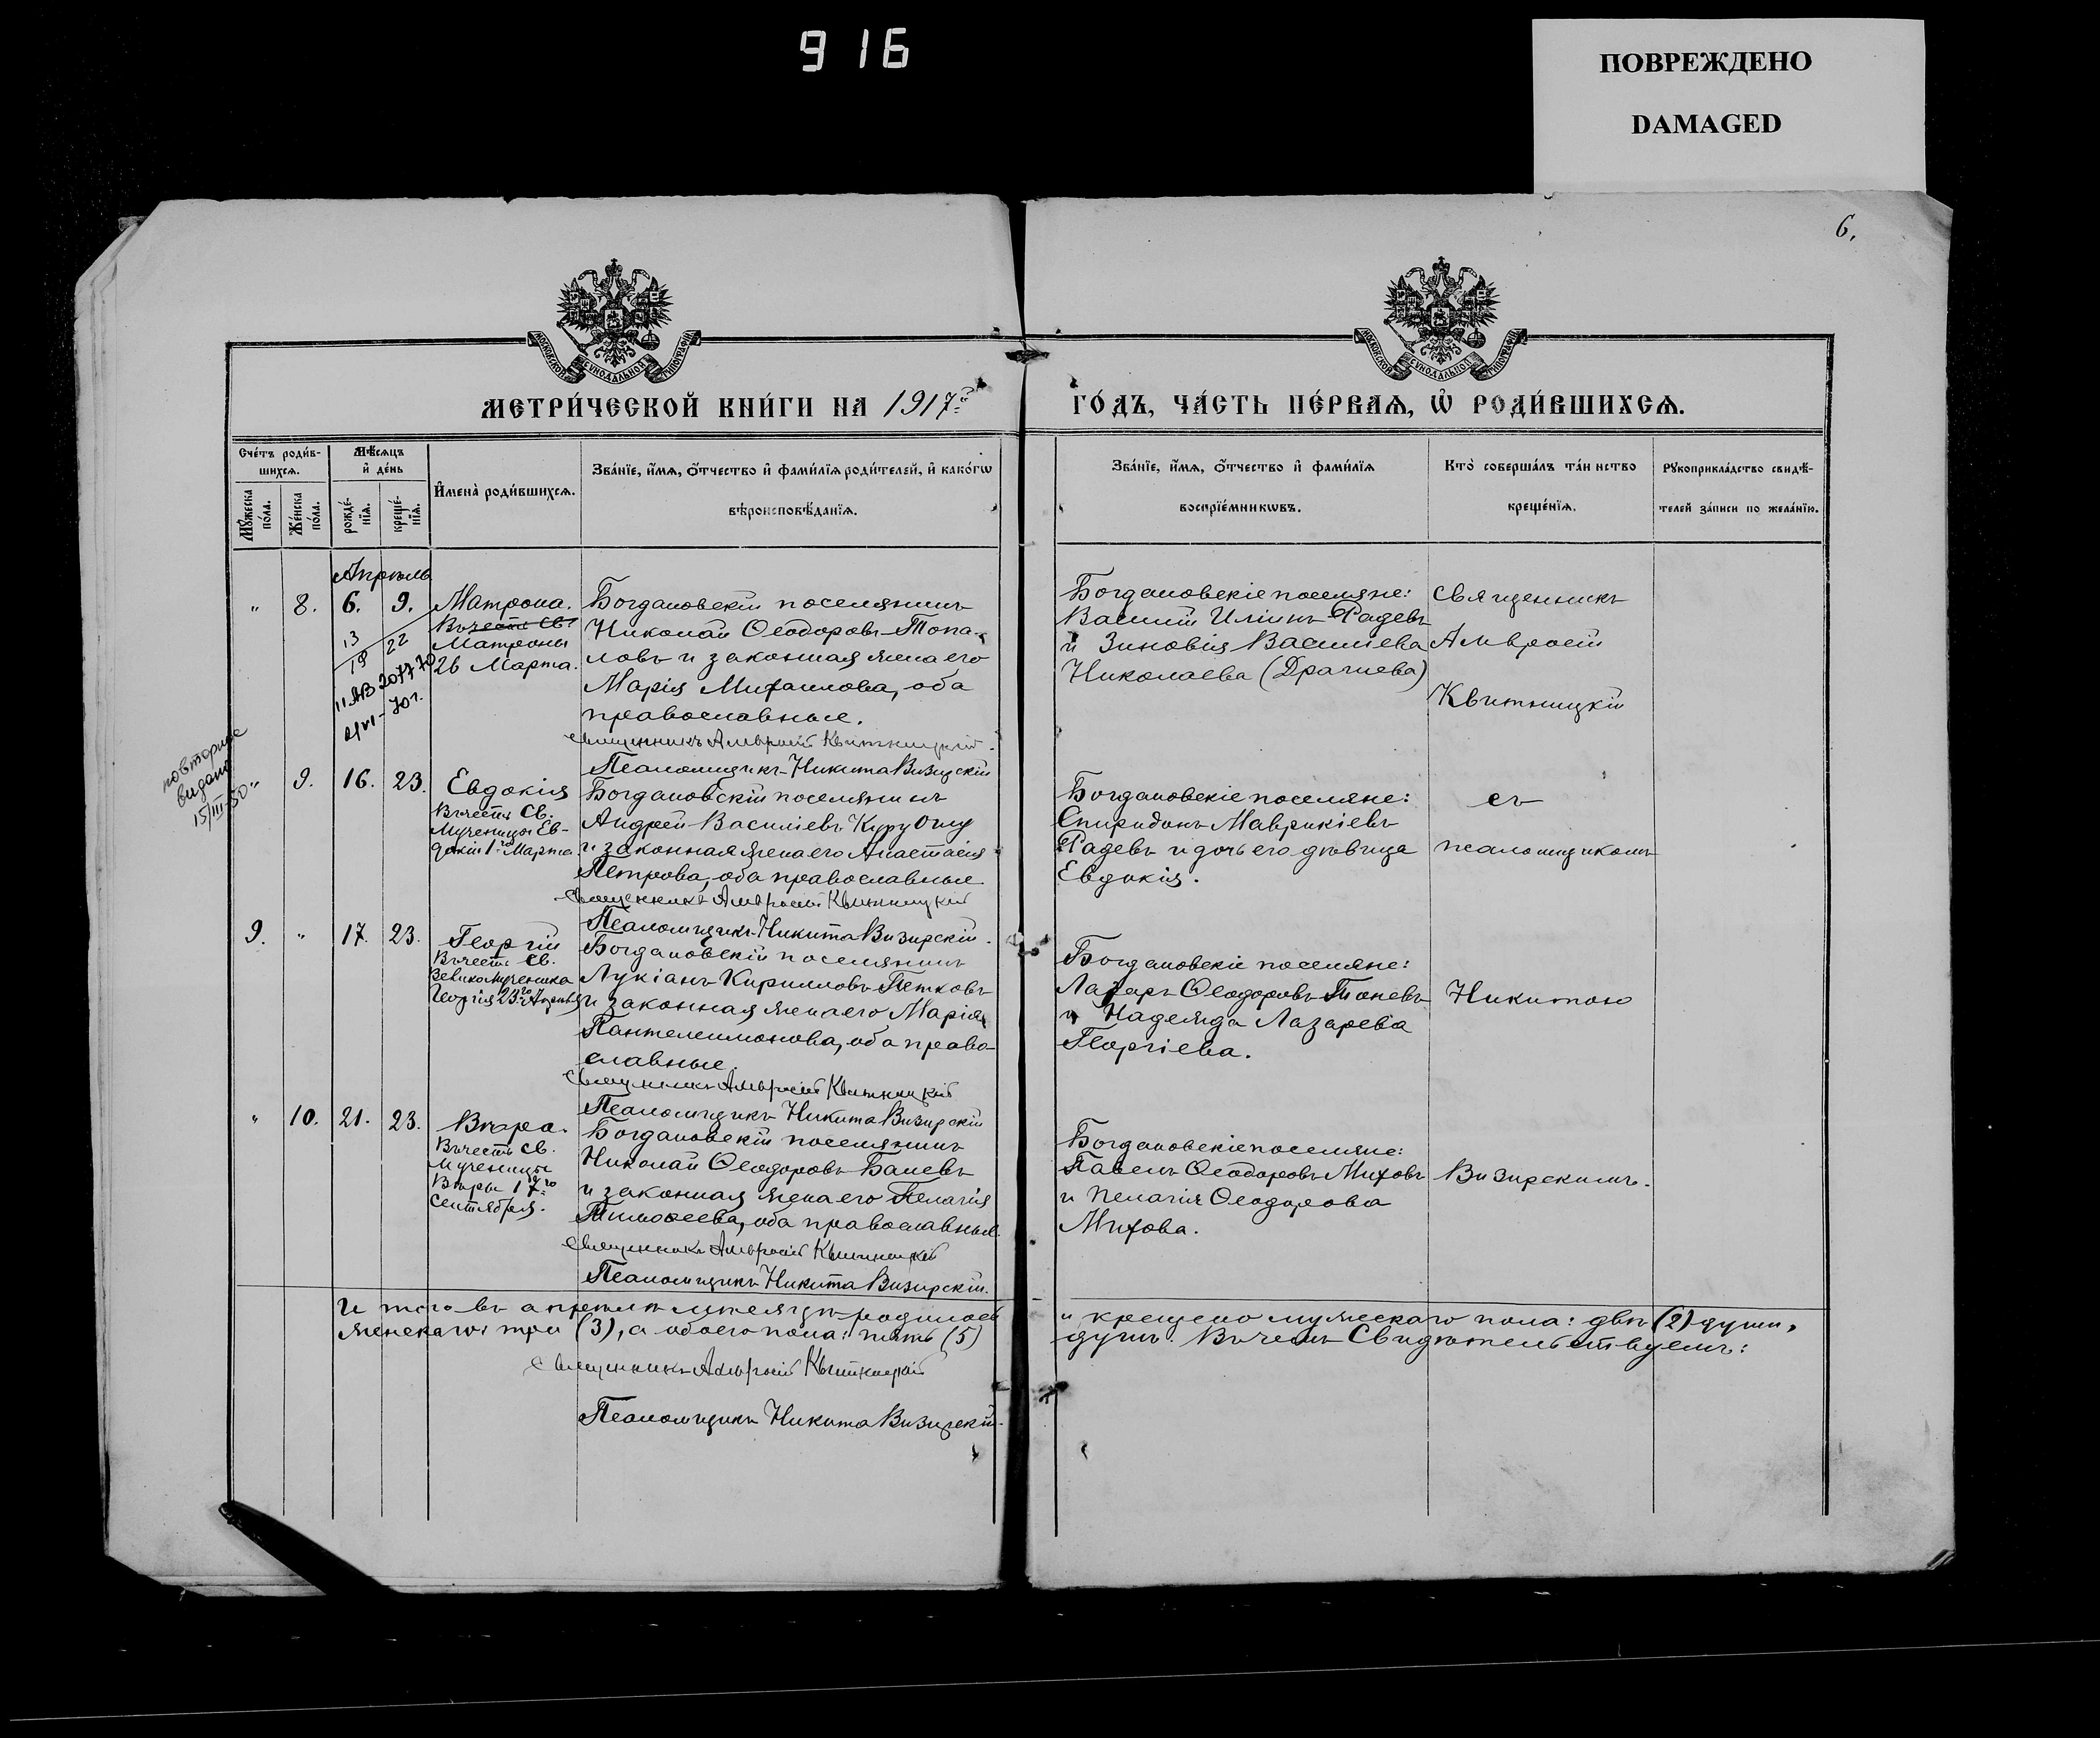 916
ПОВРЕЖДЕНО
DAMAGED
6.
МЕТРИ́ЧЕСКОЙ КНИ́ГИ НА 1917й
ГО́ДЪ, ЧА́СТЬ ПЕ́РВАЯ, Ѿ РОДИ́ВШИХСЯ.
Сче́тъ роди́в-
шихся.
Мѣсяцъ
и де́нь
Му́жеска
по́ла.
Же́нска
по́ла.
рожде́-
нїя.
креще́-
нїя.
Имена̀ роди́вшихся.
Зва́нїе, и́мя, о́тчество и фами́лїя роди́телей, и како́гѡ
вѣроисповѣ́данїя.
Зва́нїе, и́мя, о́тчество и фами́лїя
воспрїе́мникѡвъ.
Кто̀ соверша́лъ та́инство
креще́нїя.
Рукоприкла́дство свидѣ́-
телей за́писи по жела́нїю.
Апрѣль
" 8. 6. 9. Матрона.
Въ честь Св.
Матроны
26 Марта.
Богдановскій поселянинъ
Николай Ѳеодоровъ Топа-
ловъ и законная жена его
Марія Михаилова, оба
православные.
Священникъ Амвросій Квитницкій.
Псаломщикъ Никита Визирскій
Богдановскіе поселяне:
Василій Иліинъ Радевъ
и Зиновія Василіева
Николаева (Драгиева)
Священникъ
Амвросій
Квитницкій
13
19
22
повторное
видано
15/III-50
" 9. 16. 23. Евдокія
Въ честь Св.
Мученицы Ев-
докіи 1го Марта.
Богдановскій поселянинъ
Андрей Василіевъ Куру Оглу
и законная жена его Анастасія
Петрова, оба православные.
Священникъ Амвросій Квитницкій
Псаломщикъ Никита Визирскій.
Богдановскіе поселяне:
Спиридонъ Маврикіевъ
Радевъ и дочь его дѣвица
Евдокія.
съ
псаломщикомъ
9. " 17. 23. Георгій
Въ честь Св.
Великомученика
Георгія 23го Апрѣля
Богдановскій поселянинъ
Лукіанъ Кирилловъ Петковъ
и законная жена его Марія
Пантелеимонова, оба право-
славные.
Священникъ Амвросій Квитницкій
Псаломщикъ Никита Визирскій
Богдановскіе поселяне:
Лазарь Ѳеодоровъ Тоневъ
и Надежда Лазарева
Георгіева.
Никитою
" 10. 21. 23. Вѣра.
Въ честь Св.
Мученицы
Вѣры 17го
Сентября.
Богдановскій поселянинъ
Николай Ѳеодоровъ Баневъ
и законная жена его Пелагія
Тимоѳеева, оба православные.
Священникъ Амвросій Квитницкій
Псаломщикъ Никита Визирскій.
Богдановскіе поселяне:
Павелъ Ѳеодоровъ Миховъ
и Пелагія Ѳеодорова
Михова.
Визирскимъ.
Итого въ апрѣлѣ мѣсяцѣ родилось и крещено мужескаго пола: двѣ (2) души,
женскаго: три (3), а обоего пола: пять (5) душъ. Въ чемъ Свидѣтельствуемъ:
Священникъ Амвросій Квитницкій
Псаломщикъ Никита Визирскій.